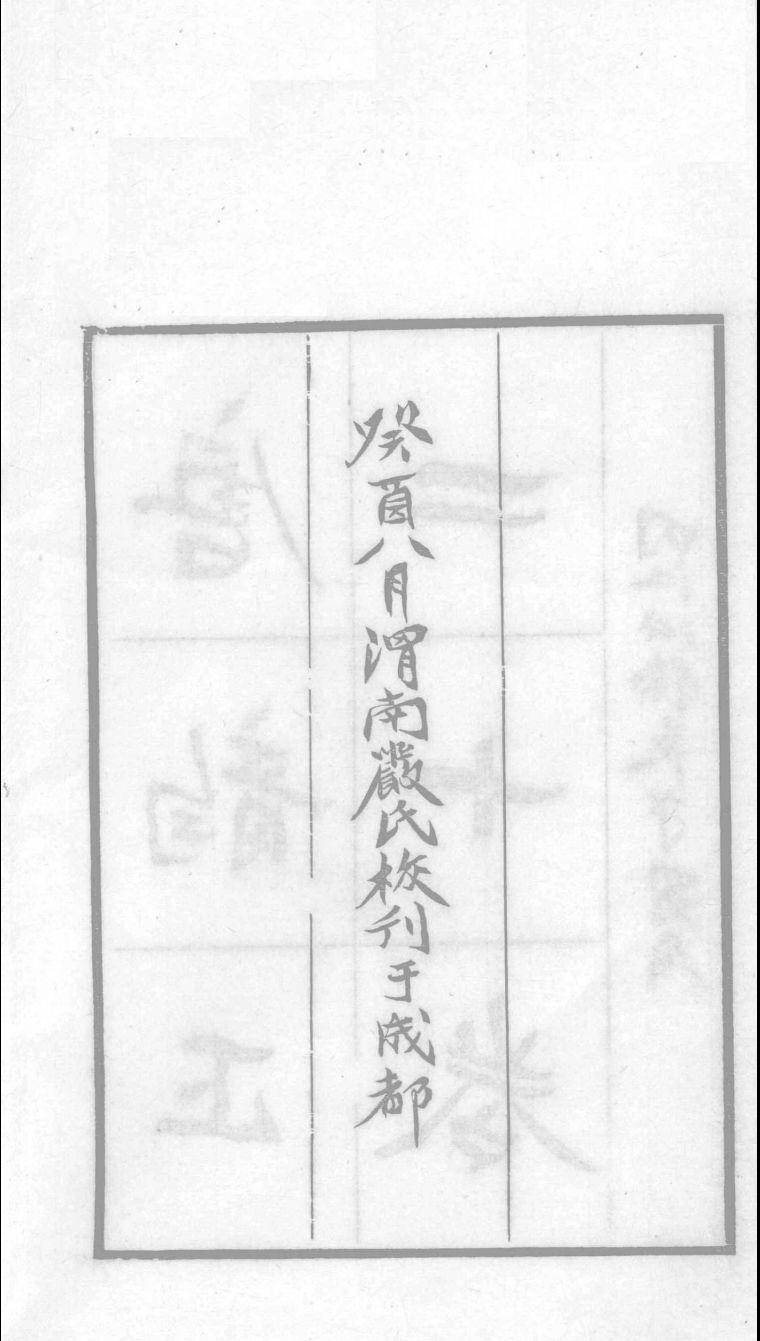 癸酉八月渭南嚴氏校刊于成都